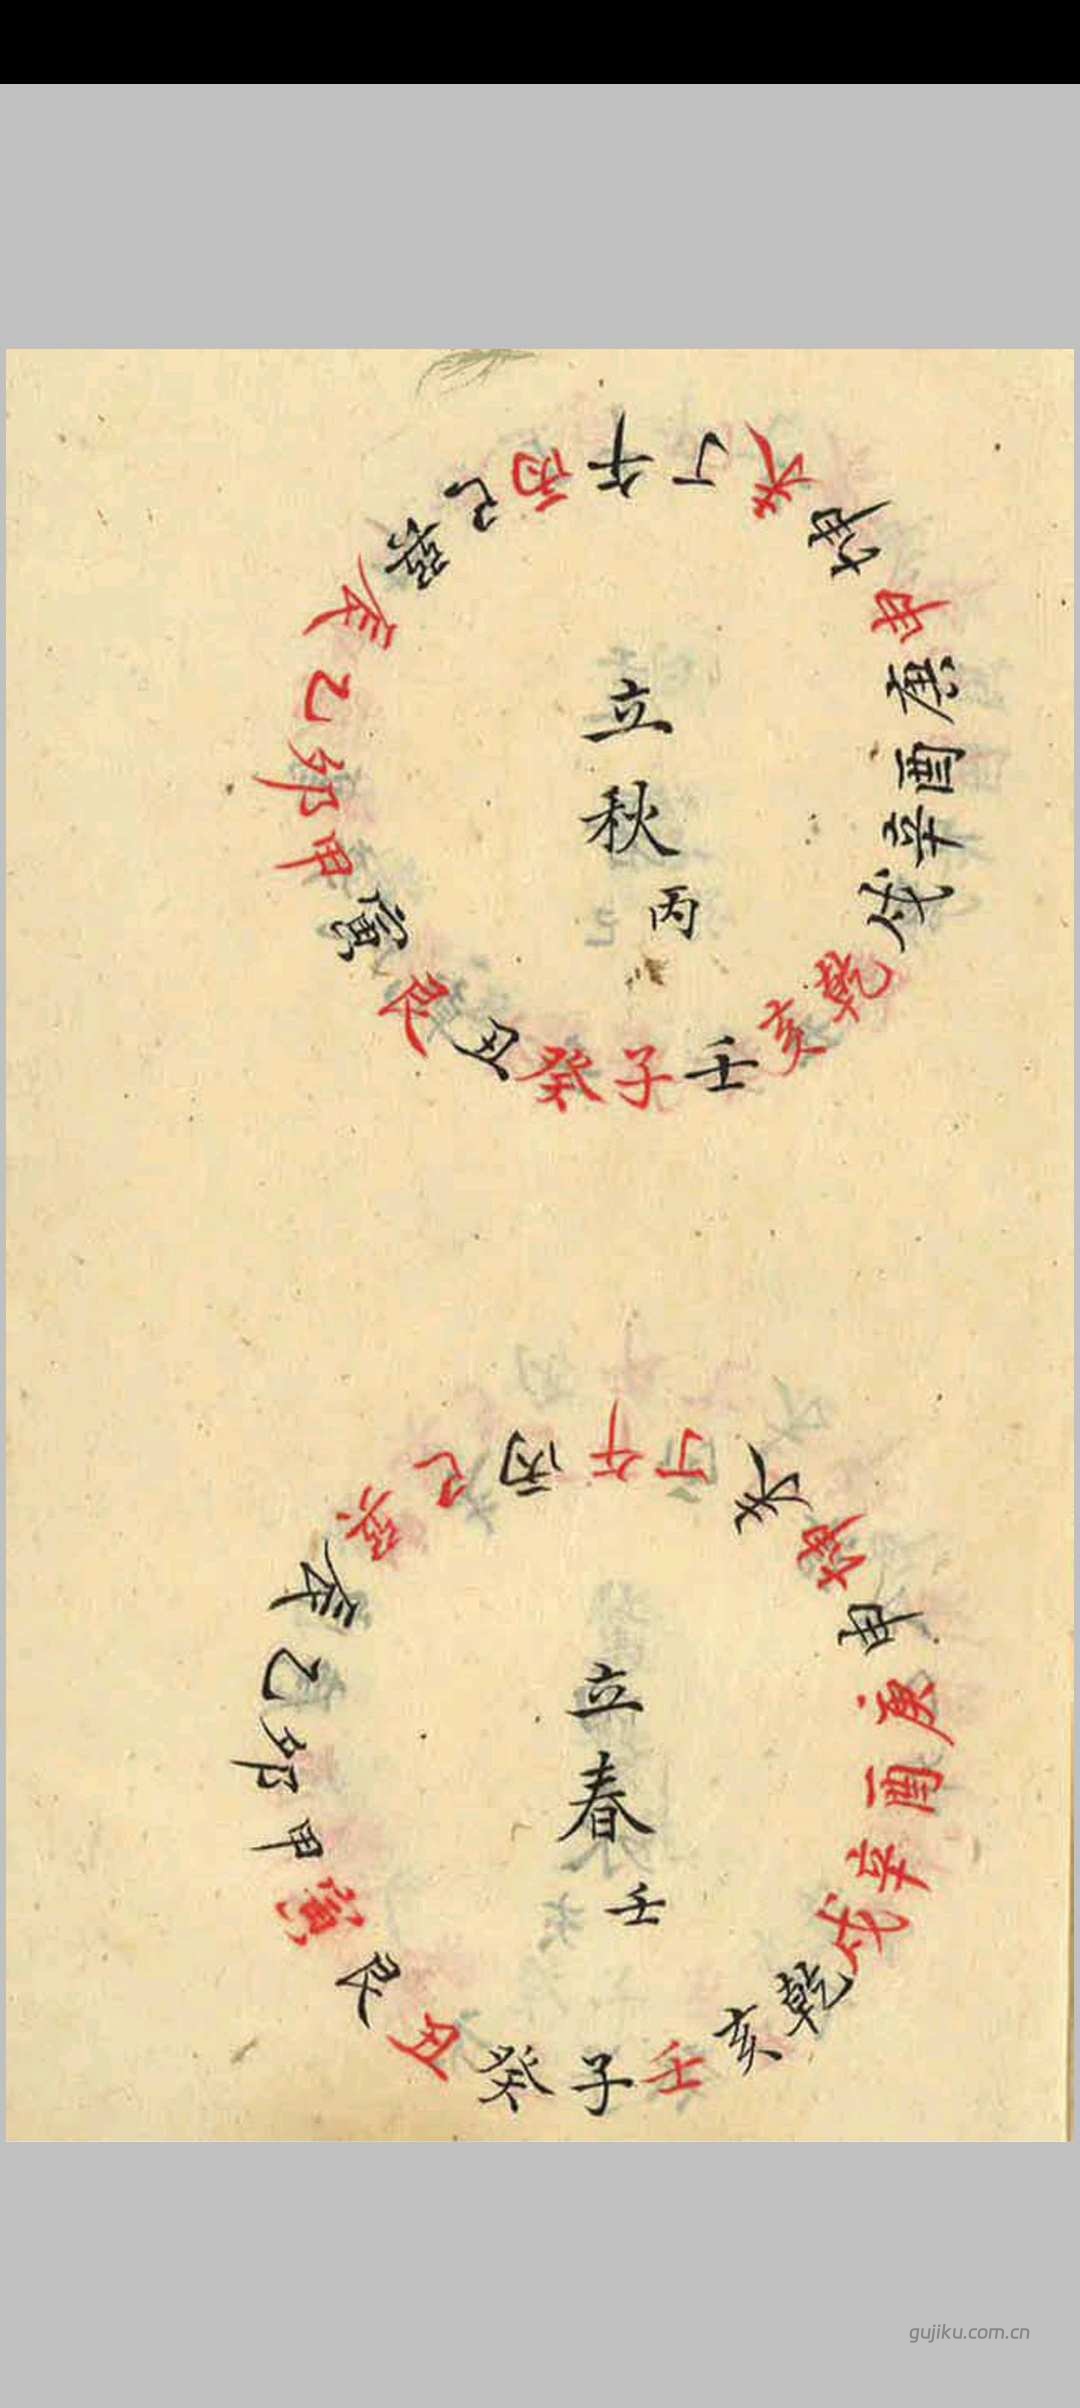 立秋
丙
午丁未坤申庚酉辛戌乾亥壬子癸丑艮寅甲卯乙辰巽巳丙
立春
壬
午丁未坤申庚酉辛戌乾亥壬子癸丑艮寅甲卯乙辰巽巳丙
gujiku.com.cn